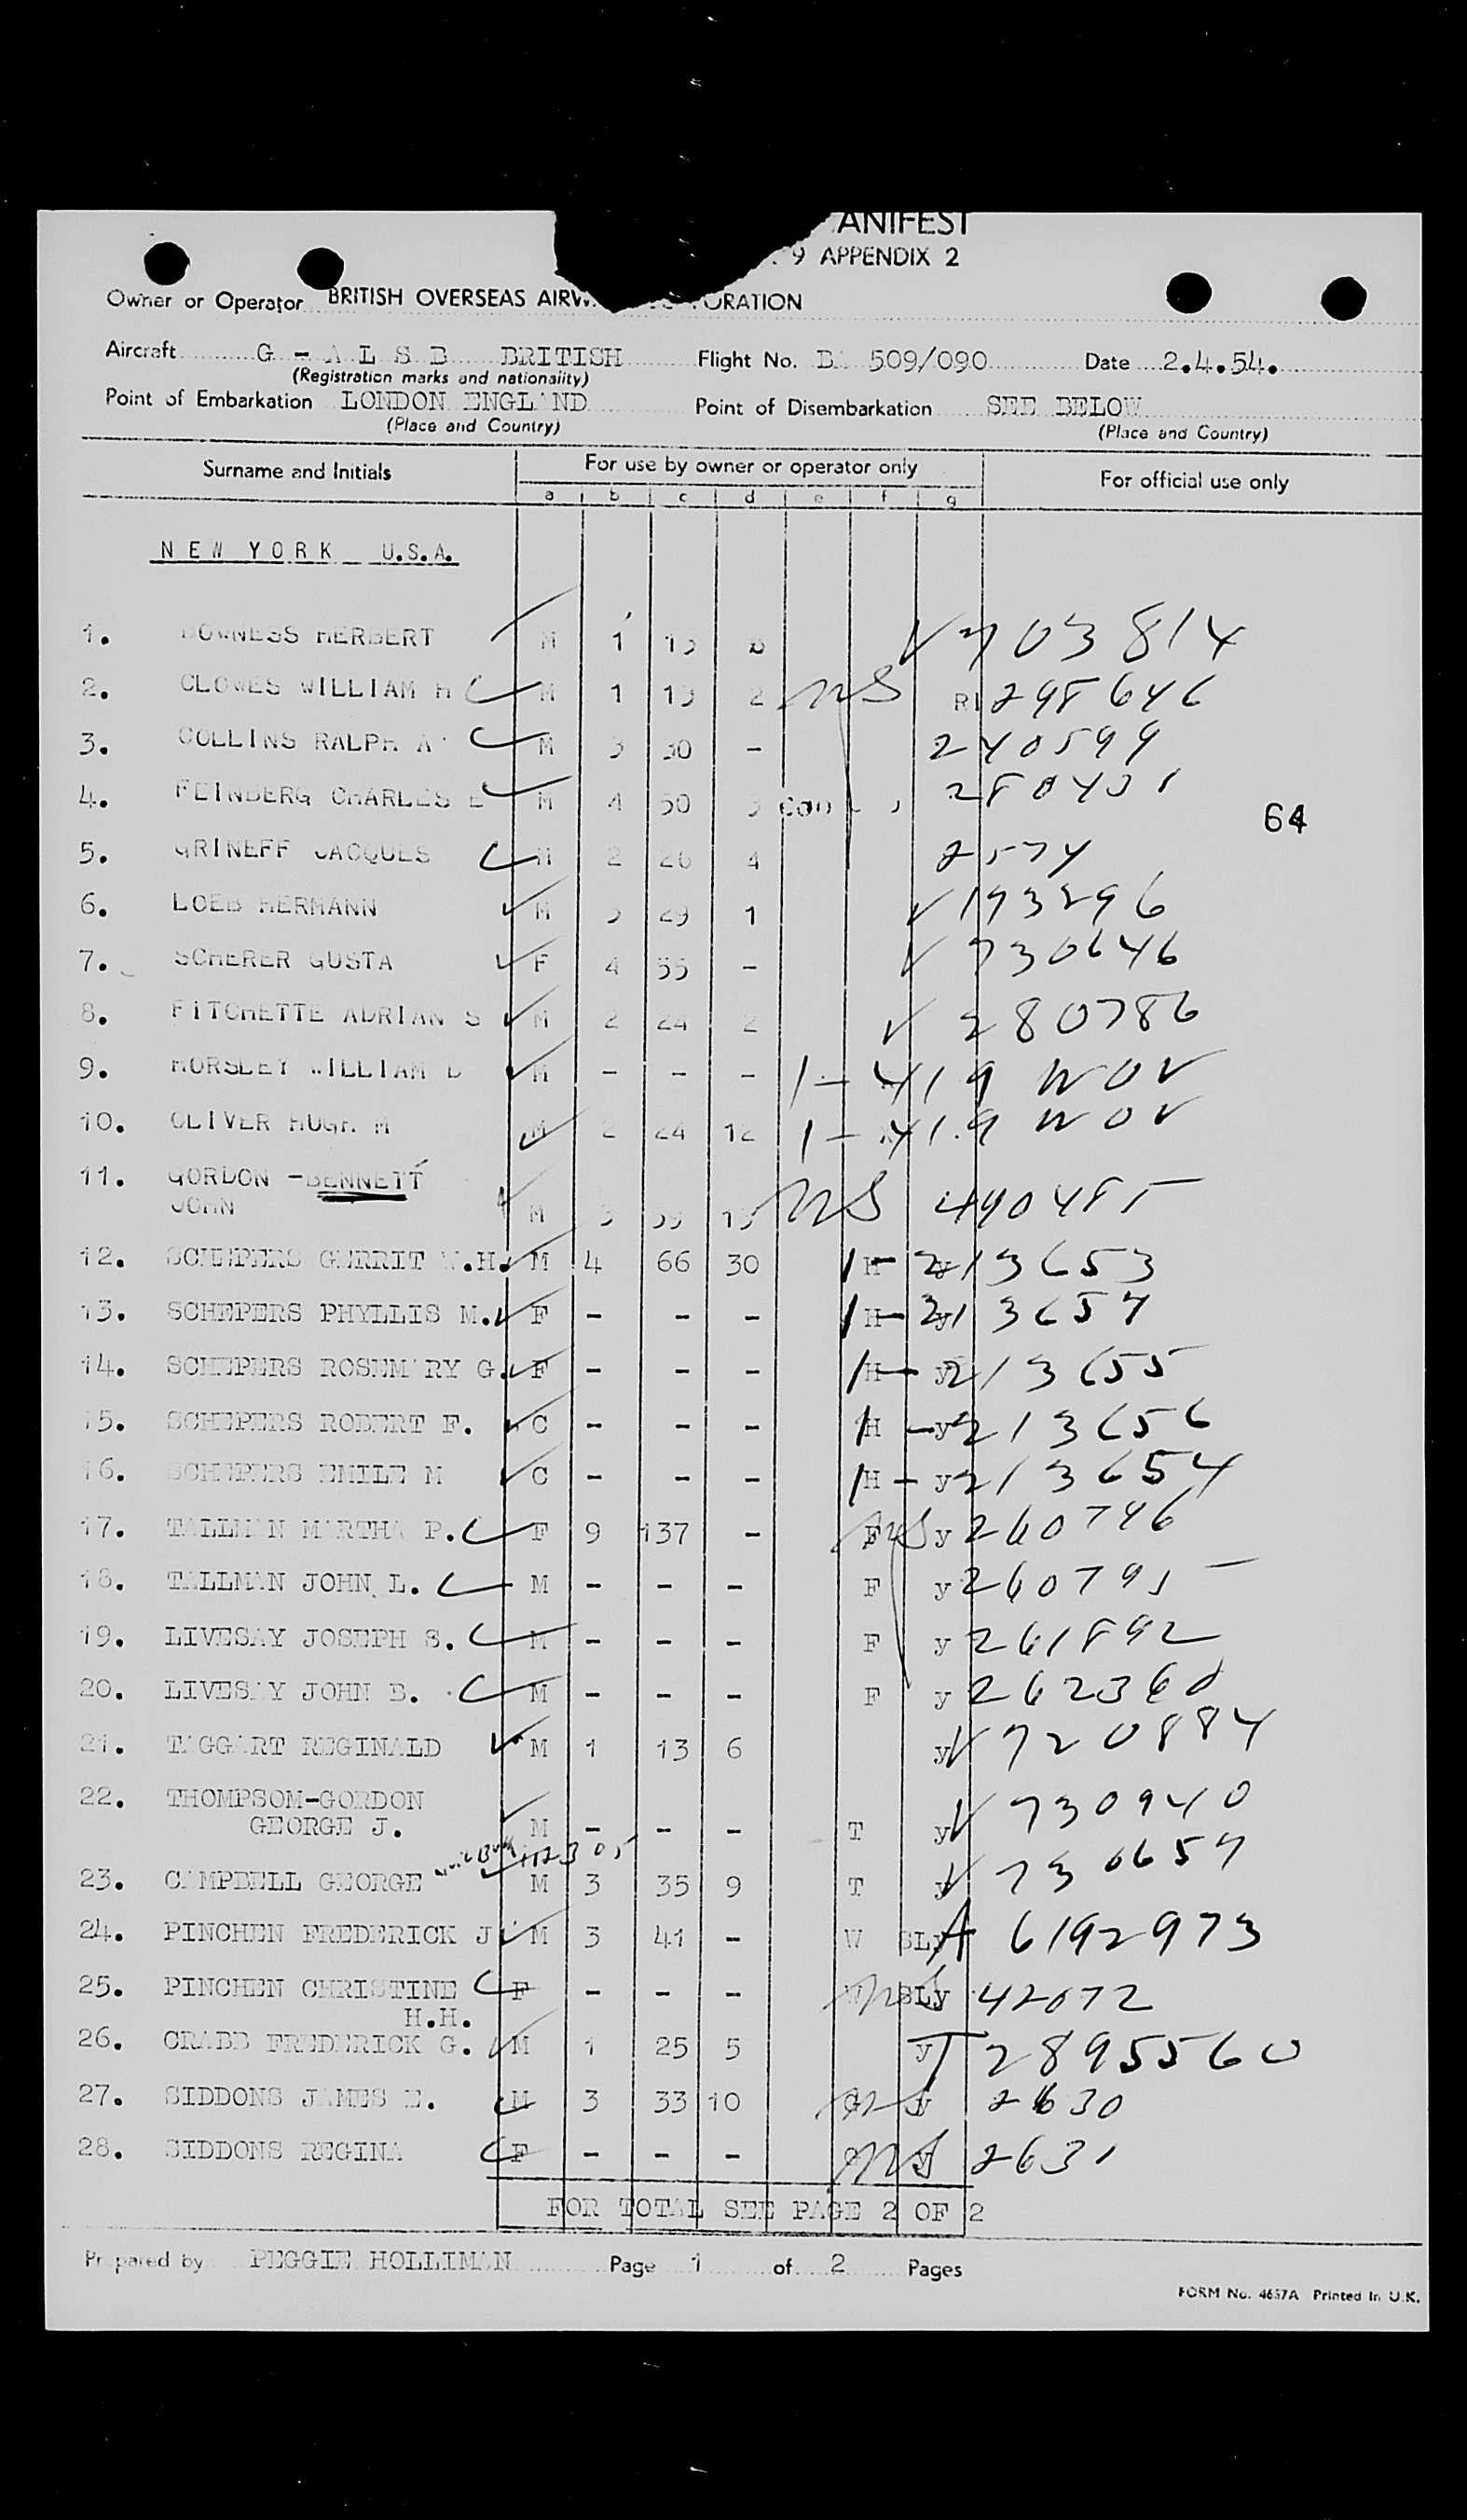 ANIFEST
9 APPENDIX 2
Owner or Operator BRITISH OVERSEAS AIRW ORATION
Aircraft G - A L S B BRITISH Flight No. BA 509/090 Date 2.4.54.
(Registration marks and nationality)
Point of Embarkation LONDON ENGLAND Point of Disembarkation SEE BELOW
(Place and Country) (Place and Country)
Surname and Initials For use by owner or operator only For official use only
a b c d e f g
NEW YORK U.S.A.
1. BOWNESS HERBERT M 1 703814
2. CLOWES WILLIAM H M 1 2 NS 298646
3. COLLINS RALPH A M 3 30 - 240599
4. FEINBERG CHARLES E M 4 50 280431
64
5. GRINEFF JACQUES M 2 26 4 2574
6. LOEB HERMANN M 3 29 1 193296
7. SCHERER GUSTA F 4 55 - 730646
8. FITCHETTE ADRIAN S M 2 24 2 280786
9. HORSLEY WILLIAM D M - - - 1- 419 NOV
10. OLIVER HUGH M M 2 24 12 1- 41.9 NOV
11. GORDON -BENNETT
JOHN M 3 NS 490485
12. SCHEPERS GERRIT W.H. M 4 66 30 H 213653
13. SCHEPERS PHYLLIS M. F - - - H y 213657
14. SCHEPERS ROSEMARY G. F - - - H y 213655
15. SCHEPERS ROBERT F. C - - - H y 213656
16. SCHEPERS EMILE M C - - - H y 213654
17. TALLMAN MARTHA P. F 9 137 - F NS y 260746
18. TALLMAN JOHN L. M - - - F y 260795
19. LIVESAY JOSEPH S. M - - - F y 261892
20. LIVESAY JOHN B. M - - - F y 262360
21. TAGGART REGINALD M 1 13 6 y 720884
22. THOMPSOM-GORDON
GEORGE J. M - - - T y 730940
23. CAMPBELL GEORGE M 3 35 9 T y 730657
24. PINCHEN FREDERICK J M 3 41 - W SLy A 6192973
25. PINCHEN CHRISTINE F - - - W NS SLy 42072
H.H.
26. CRABB FREDERICK G. M 1 25 5 y T 2895560
27. SIDDONS JAMES E. M 3 33 10 NS y 2630
28. SIDDONS REGINA F - - - NS y 2631
FOR TOTAL SEE PAGE 2 OF 2
Prepared by PEGGIE HOLLIMAN Page 1 of 2 Pages
FORM No. 4657A Printed in U.K.